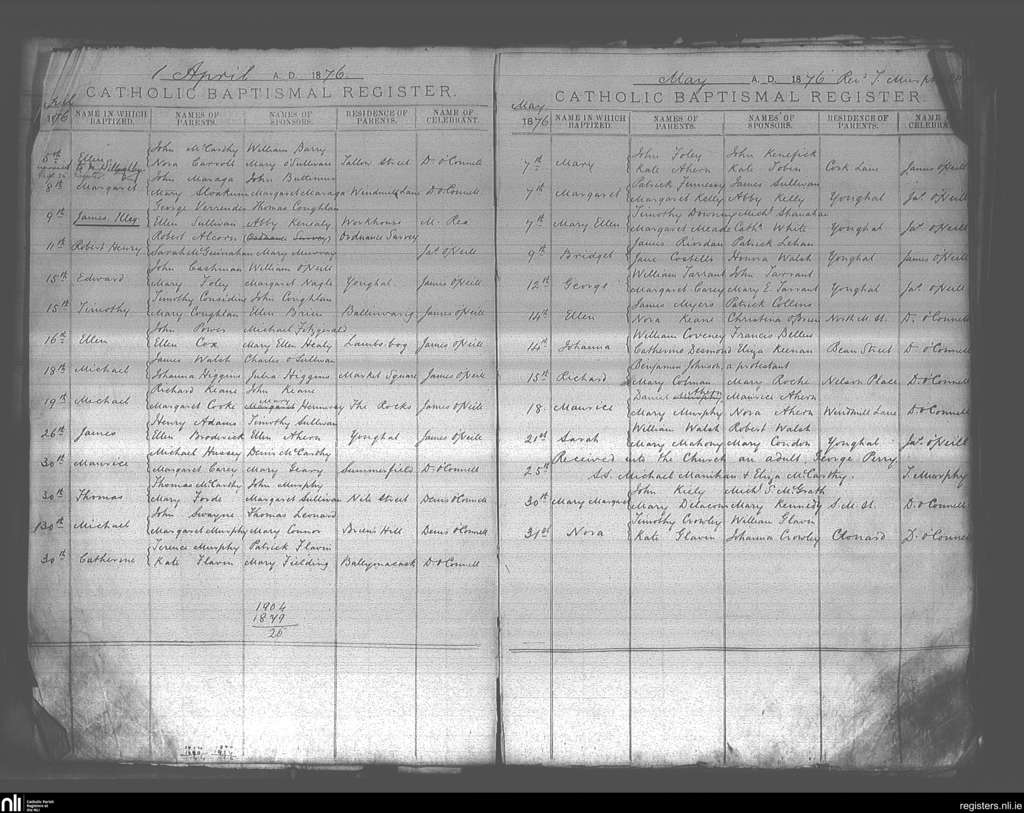 1 April A.D. 1876.
CATHOLIC BAPTISMAL REGISTER.
1876 NAME IN WHICH BAPTIZED. NAMES OF PARENTS. NAMES OF SPONSORS. RESIDENCE OF PARENTS. NAME OF CELEBRANT.
John McCarthy William Barry
5th Ellen Nora Carroll Mary O'Sullivan Tallow Street D. O'Connell
John Maraga John Bultimus
8th Margaret Mary Margaret Maraga Windmill Lane D. O'Connell
George Verrender Thomas Coughlan
9th James, Illeg. Ellen Sullivan Abby Kenealy Workhouse M. Rea
Robert Alcorn Ordnance Survey Ordnance Survey
11th Robert Henry Sarah McGuinahan Mary Murray Jas O'Neill
John Cashman William O'Neill
15th Edward Mary Foley Margaret Nagle Youghal James O'Neill
Timothy Considine John Coughlan
15th Timothy Mary Coughlan Ellen Brien Ballinvarig James O'Neill
John Power Michael Fitzgerald
16th Ellen Ellen Cox Mary Ellen Healy Lambs bog James O'Neill
James Walsh Charles O'Sullivan
18th Michael Johanna Higgins Julia Higgins Market Square James O'Neill
Richard Keane John Keane
19th Michael Margaret Cooke Mary Margaret Hennessy The Rocks James O'Neill
Henry Adams Timothy Sullivan
26th James Ellen Broderick Ellen Ahern Youghal James O'Neill
Michael Hussey Denis McCarthy
30th Maurice Margaret Carey Mary Geary Summerfield D. O'Connell
Thomas McCarthy John Murphy
30th Thomas Mary Forde Margaret Sullivan Nile Street Denis O'Connell
John Swayne Thomas Leonard
30th Michael Margaret Murphy Mary Connor Hill Denis O'Connell
Terence Murphy Patrick Flavin
30th Catherine Kate Flavin Mary Fielding Ballymacask D. O'Connell
1904
1879
25
May A.D. 1876 Revd T. Murphy
CATHOLIC BAPTISMAL REGISTER.
May
1876 NAME IN WHICH BAPTIZED. NAMES OF PARENTS. NAMES OF SPONSORS. RESIDENCE OF PARENTS. NAME CELEBRA
John Foley John Kenefick
7th Mary Kate Ahern Kate Tobin Cork Lane James O'Neill
Patrick Finnessy James Sullivan
7th Margaret Margaret Kelly Abby Kelly Youghal Jas. O'Neill
Timothy Downing Michl Shanahan
7th Mary Ellen Margaret Meade Cathe White Youghal Jas. O'Neill
James Riordan Patrick Lehan
9th Bridget Jane Costello Honora Walsh Youghal James O'Neill
William Tarrant John Tarrant
12th George Margaret Carey Mary E. Tarrant Youghal Jas. O'Neill
James Myers Patrick Collins
14th Ellen Nora Keane Christina O'Brien North M. St. D. O'Connell
William Coveney Francis Belles
14th Johanna Catherine Desmond Eliza Keenan Bean Street D. O'Connell
Benjamin Johnson, a protestant
15th Richard Mary Colman Mary Roche Nelson Place D. O'Connell
Daniel Ahern Murphy Maurice Ahern
18. Maurice Mary Murphy Nora Ahern Windmill Lane D. O'Connell
William Walsh Robert Walsh
21st Sarah Mary Mahony Mary Condon Youghal Jas. O'Neill
25th Received into the Church an adult, George Perry
S.S. Michael Manihan & Eliza McCarthy. T. Murphy
John Kiely Michl S. McGrath
30th Mary Margaret Mary Delacon Mary Kennedy S.M. St. D. O'Connell
Timothy Crowley William Glavin
31st Nora Kate Glavin Johanna Crowley Clonard D. O'Connell
nli Catholic Parish Registers at the NLI
registers.nli.ie